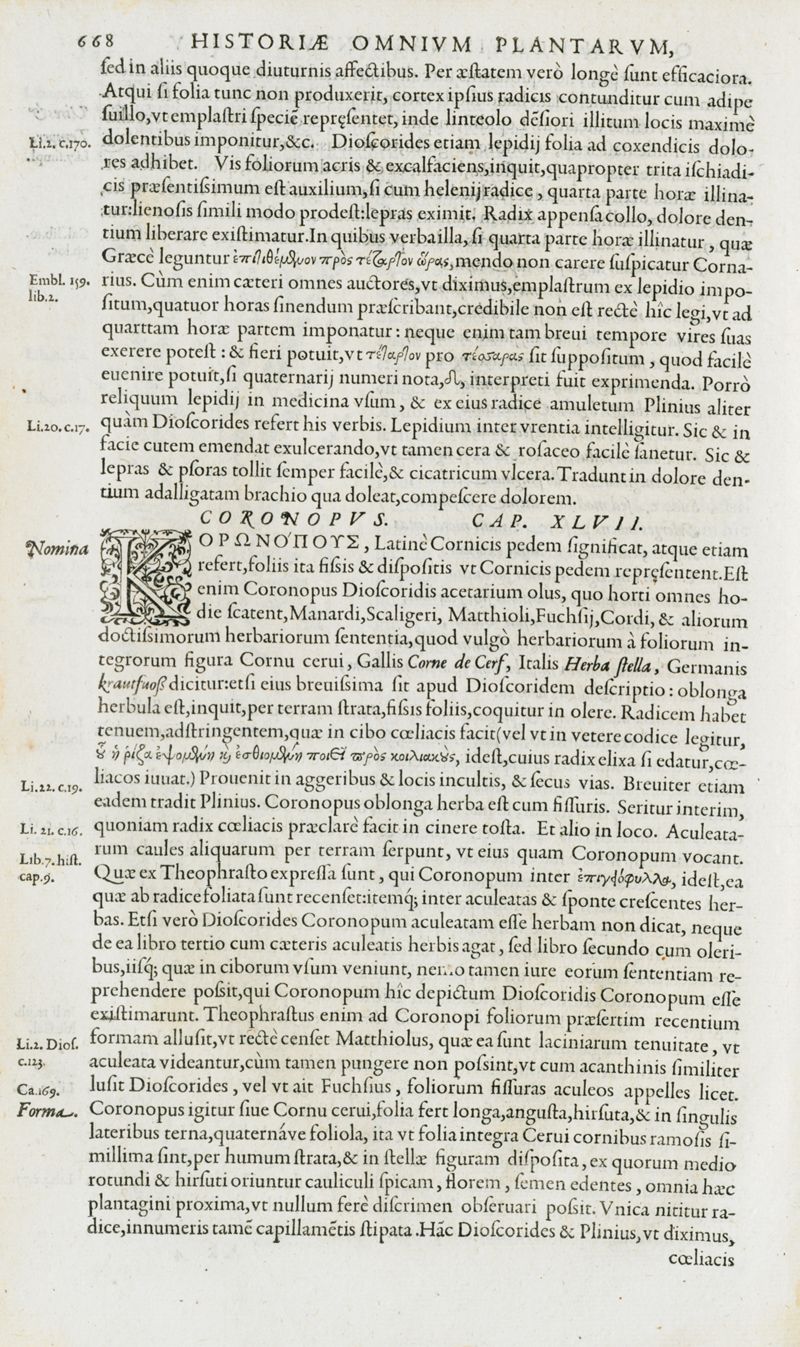 668 HISTORIÆ OMNIVM PLANTARVM,
ſed in aliis quoque diuturnis affectibus. Per æſtatem verò longè ſunt efficaciora.
Atqui ſi folia tunc non produxerit, cortex ipſius radicis contunditur cum adipe
ſuillo, vt emplaſtri ſpeciẽ repręſentet, inde linteolo dẽſiori illitum locis maximè
Li.2. c.170. dolentibus imponitur, &c. Dioſcorides etiam lepidij folia ad coxendicis dolo-
res adhibet. Vis foliorum acris & excalfaciens, inquit, quapropter trita iſchiadi-
cis præſentiſsimum eſt auxilium, ſi cum helenij radice, quarta parte horæ illina-
tur: lienoſis ſimili modo prodeſt: lepras eximit. Radix appenſa collo, dolore den-
tium liberare exiſtimatur. In quibus verba illa, ſi quarta parte horæ illinatur, quæ
Græcè leguntur ἐπιτιθέμενον πρὸς τέταρτον ὥρας, mendo non carere ſuſpicatur Corna-
Embl. 159. lib.2. rius. Cùm enim cæteri omnes auctores, vt diximus, emplaſtrum ex lepidio impo-
ſitum, quatuor horas ſinendum præſcribant, credibile non eſt rectè hîc legi, vt ad
quarttam horæ partem imponatur: neque enim tam breui tempore vires ſuas
exerere poteſt: & fieri potuit, vt τέταρτον pro τέσσαρας ſit ſuppoſitum, quod facilè
euenire potuit, ſi quaternarij numeri nota, δ, interpreti fuit exprimenda. Porrò
reliquum lepidij in medicina vſum, & ex eius radice amuletum Plinius aliter
Li.20. c.17. quàm Dioſcorides refert his verbis. Lepidium inter vrentia intelligitur. Sic & in
facie cutem emendat exulcerando, vt tamen cera & roſaceo facilè ſanetur. Sic &
lepras & pſoras tollit ſemper facilè, & cicatricum vlcera. Tradunt in dolore den-
tium adalligatam brachio qua doleat, compeſcere dolorem.
CORONOPVS. CAP. XLVII.
Nomina ΚΟΡΩΝΟΠΟΥΣ, Latinè Cornicis pedem ſignificat, atque etiam
refert, foliis ita fiſsis & diſpoſitis vt Cornicis pedem repręſentent. Eſt
enim Coronopus Dioſcoridis acetarium olus, quo horti omnes ho-
die ſcatent, Manardi, Scaligeri, Matthioli, Fuchſij, Cordi, & aliorum
doctiſsimorum herbariorum ſententia, quod vulgò herbariorum à foliorum in-
tegrorum figura Cornu cerui, Gallis Corne de Cerf, Italis Herba ſtella, Germanis
krautfuoſz dicitur: etſi eius breuiſsima ſit apud Dioſcoridem deſcriptio: oblonga
herbula eſt, inquit, per terram ſtrata, fiſsis foliis, coquitur in olere. Radicem habet
tenuem, adſtringentem, quæ in cibo cœliacis facit (vel vt in vetere codice legitur,
οὗ ἡ ρίζα ἑψομένη καὶ ἐσθιομένη ποιεῖ πρὸς κοιλιακοὺς, id eſt, cuius radix elixa ſi edatur, cœ-
Li.22. c.19. liacos iuuat.) Prouenit in aggeribus & locis incultis, & ſecus vias. Breuiter etiam
eadem tradit Plinius. Coronopus oblonga herba eſt cum fiſſuris. Seritur interim,
Li. 21. c.16. quoniam radix cœliacis præclarè facit in cinere toſta. Et alio in loco. Aculeata-
Lib.7. hiſt. rum caules aliquarum per terram ſerpunt, vt eius quam Coronopum vocant.
cap.9. Quæ ex Theophraſto expreſſa ſunt, qui Coronopum inter ἐπιγειόφυλλα, id eſt, ea
quæ ab radice foliata ſunt recenſet: itemq; inter aculeatas & ſponte creſcentes her-
bas. Etſi verò Dioſcorides Coronopum aculeatam eſſe herbam non dicat, neque
de ea libro tertio cum cæteris aculeatis herbis agat, ſed libro ſecundo cum oleri-
bus, iiſq; quæ in ciborum vſum veniunt, nemo tamen iure eorum ſententiam re-
prehendere poſsit, qui Coronopum hîc depictum Dioſcoridis Coronopum eſſe
exiſtimarunt. Theophraſtus enim ad Coronopi foliorum præſertim recentium
Li.2. Dioſ. formam alluſit, vt rectè cenſet Matthiolus, quæ ea ſunt laciniarum tenuitate, vt
c.123. aculeata videantur, cùm tamen pungere non poſsint, vt cum acanthinis ſimiliter
Ca.169. luſit Dioſcorides, vel vt ait Fuchſius, foliorum fiſſuras aculeos appelles licet.
Forma. Coronopus igitur ſiue Cornu cerui, folia fert longa, anguſta, hirſuta, & in ſingulis
lateribus terna, quaternáve foliola, ita vt folia integra Cerui cornibus ramoſis ſi-
millima ſint, per humum ſtrata, & in ſtellæ figuram diſpoſita, ex quorum medio
rotundi & hirſuti oriuntur cauliculi ſpicam, florem, ſemen edentes, omnia hæc
plantagini proxima, vt nullum ferè diſcrimen obſeruari poſsit. Vnica nititur ra-
dice, innumeris tamẽ capillamẽtis ſtipata. Hác Dioſcorides & Plinius, vt diximus,
cœliacis